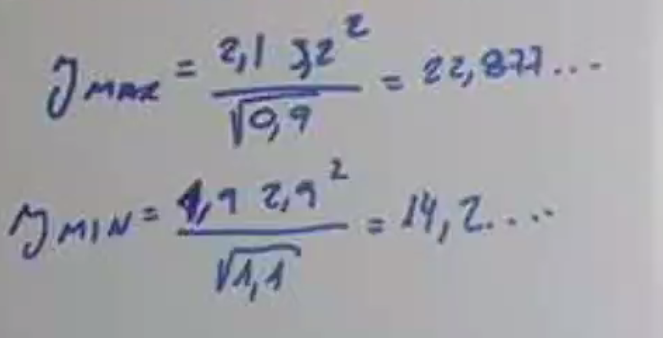 y MAX = 2,1 3,2² / √0,9 = 22,877...
y MIN = 1,9 2,9² / √1,1 = 14,2....